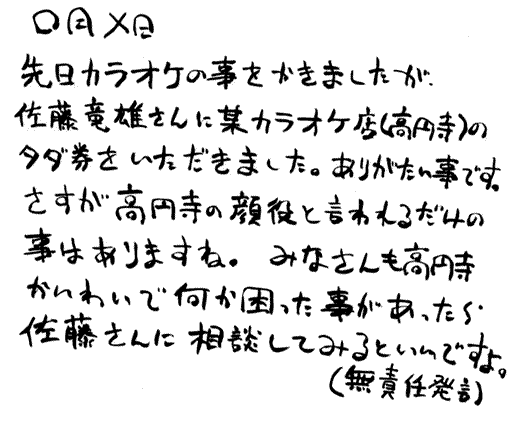 〇月×日
先日カラオケの事をかきましたが、
佐藤竜雄さんに某カラオケ店(高円寺)の
タダ券をいただきました。ありがたい事です。
さすが高円寺の顔役と言われるだけの
事はありますね。 みなさんも高円寺
かいわいで何か困った事があったら
佐藤さんに相談してみるといいですよ。
(無責任発言)